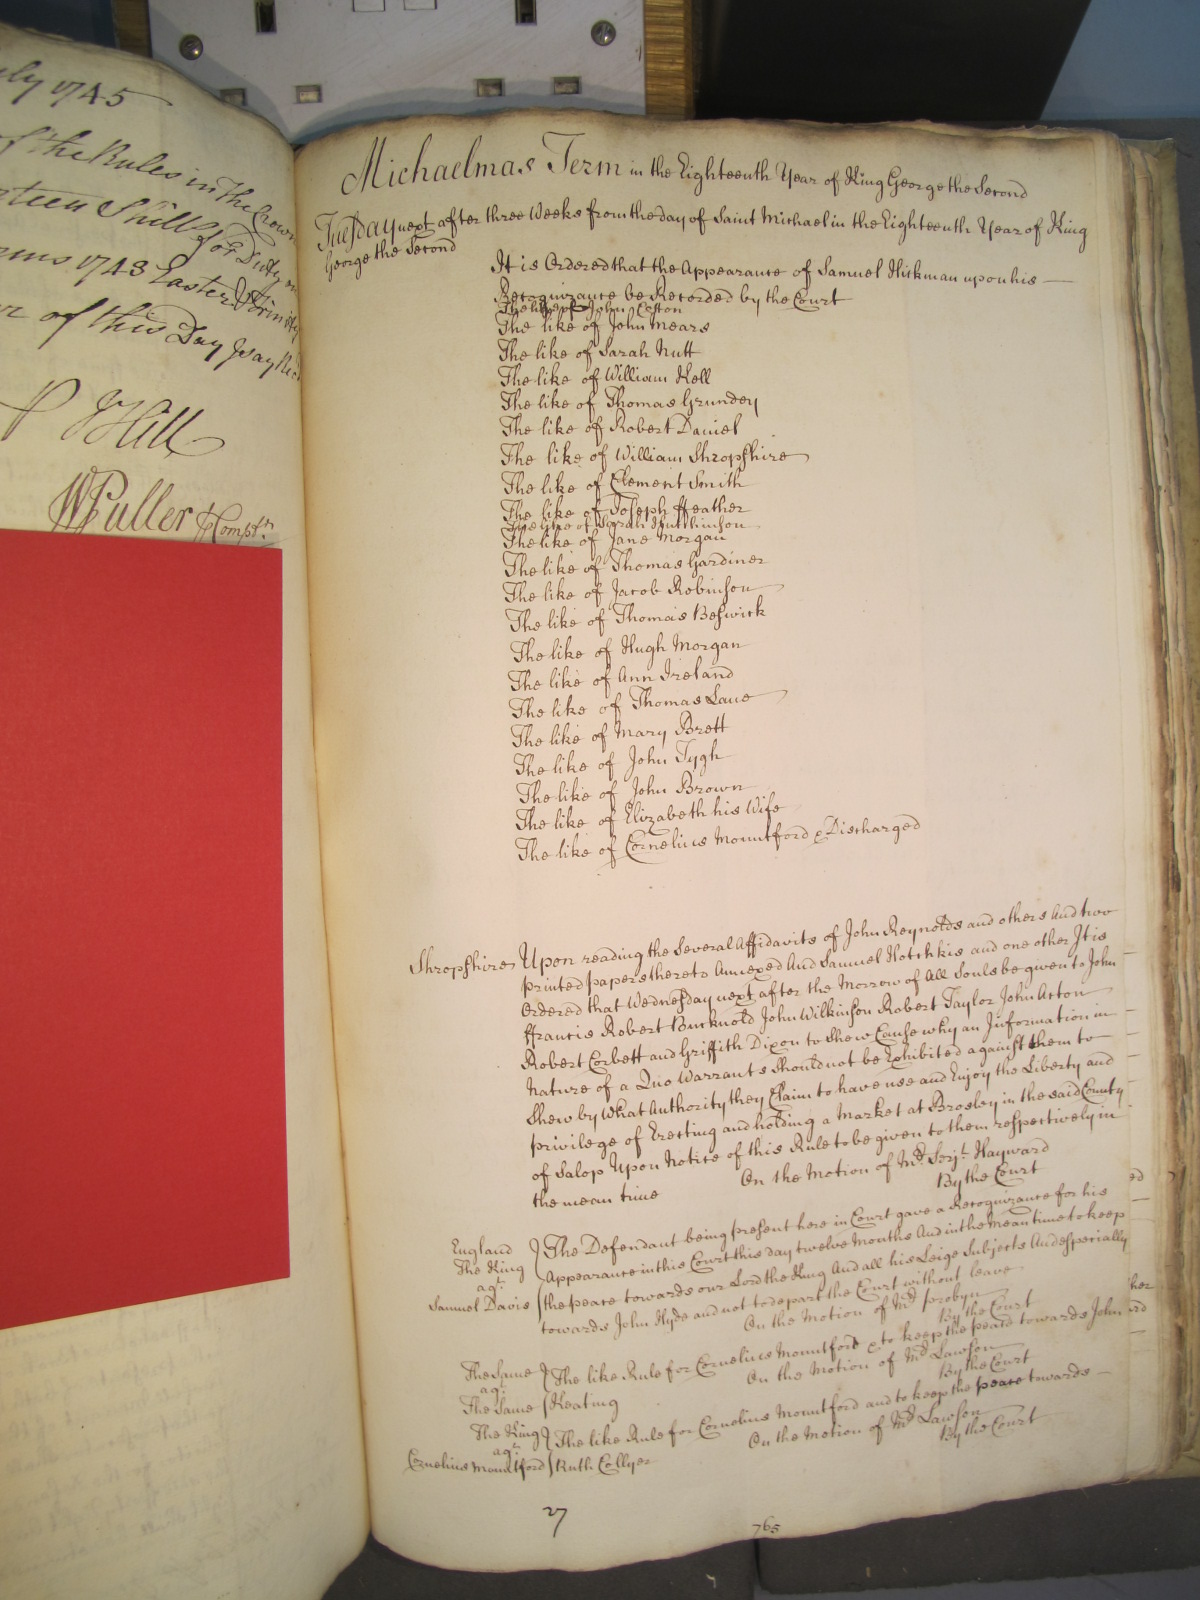 uly 1745
of the Rules in the Crown
teen Shill for Duty on
1743 Easter Trinity
of this Day pay
P Hill
W Fuller Compt.r
Michaelmas Term in the Eighteenth Year of King George the Second
Tuesday next after three Weeks from the day of Saint Michael in the Eighteenth Year of King
George the Second
It is Ordered that the Appearance of Samuel Hickman upon his
Recognizance be Recorded by the Court
The like of John
The like of John Mears
The like of Sarah Nutt
The like of William Kell
The like of Thomas Grundey
The like of Robert Daniel
The like of William Shropshire
The like of Clement Smith
The like of Joseph Heather
The like of Sarah Hutchinson
The like of Jane Morgan
The like of Thomas Gardiner
The like of Jacob Robinson
The like of Thomas Beswick
The like of Hugh Morgan
The like of Ann Ireland
The like of Thomas Lane
The like of Mary Brett
The like of John Tygh
The like of John Brown
The like of Elizabeth his Wife
The like of Cornelius Mountford & Discharged
Shropshire Upon reading the Several Affidavits of John Reynolds and others And two
printed papers thereto Annexed And Samuel Hotchkis and one other It is
Ordered that Wednesday next after the Morrow of All Souls be given to John
Francis Robert Bucknold John Wilkinson Robert Taylor John Acton
Robert Corbett and Griffith Dixon to shew Cause why an Information in
Nature of a Quo Warranto should not be Exhibited against them to
Shew by What Authority they Claim to have use and Enjoy the Liberty and
privilege of Erecting and holding a Market at Brosley in the said County
of Salop Upon Notice of this Rule to be given to them respectively in
the mean time On the Motion of Mr. Serjt. Hayward
By the Court
England } The Defendant being present here in Court gave a Recognizance for his
The King Appearance in this Court this day twelve Months And in the mean time to keep
agt.
Samuel Davis the peace towards our Lord the King And all his Leige Subjects And especially
towards John Hyde and not to depart the Court without leave
On the Motion of Mr. Probyn
By the Court
The Same } The like Rule for Cornelius Mountford & to keep the peace towards John
agt. On the Motion of Mr. Lawson
The Same Keating By the Court
The King } The like Rule for Cornelius Mountford and to keep the peace towards
agt. On the Motion of Mr. Lawson
Cornelius Mountford Ruth Collyer By the Court
27
765